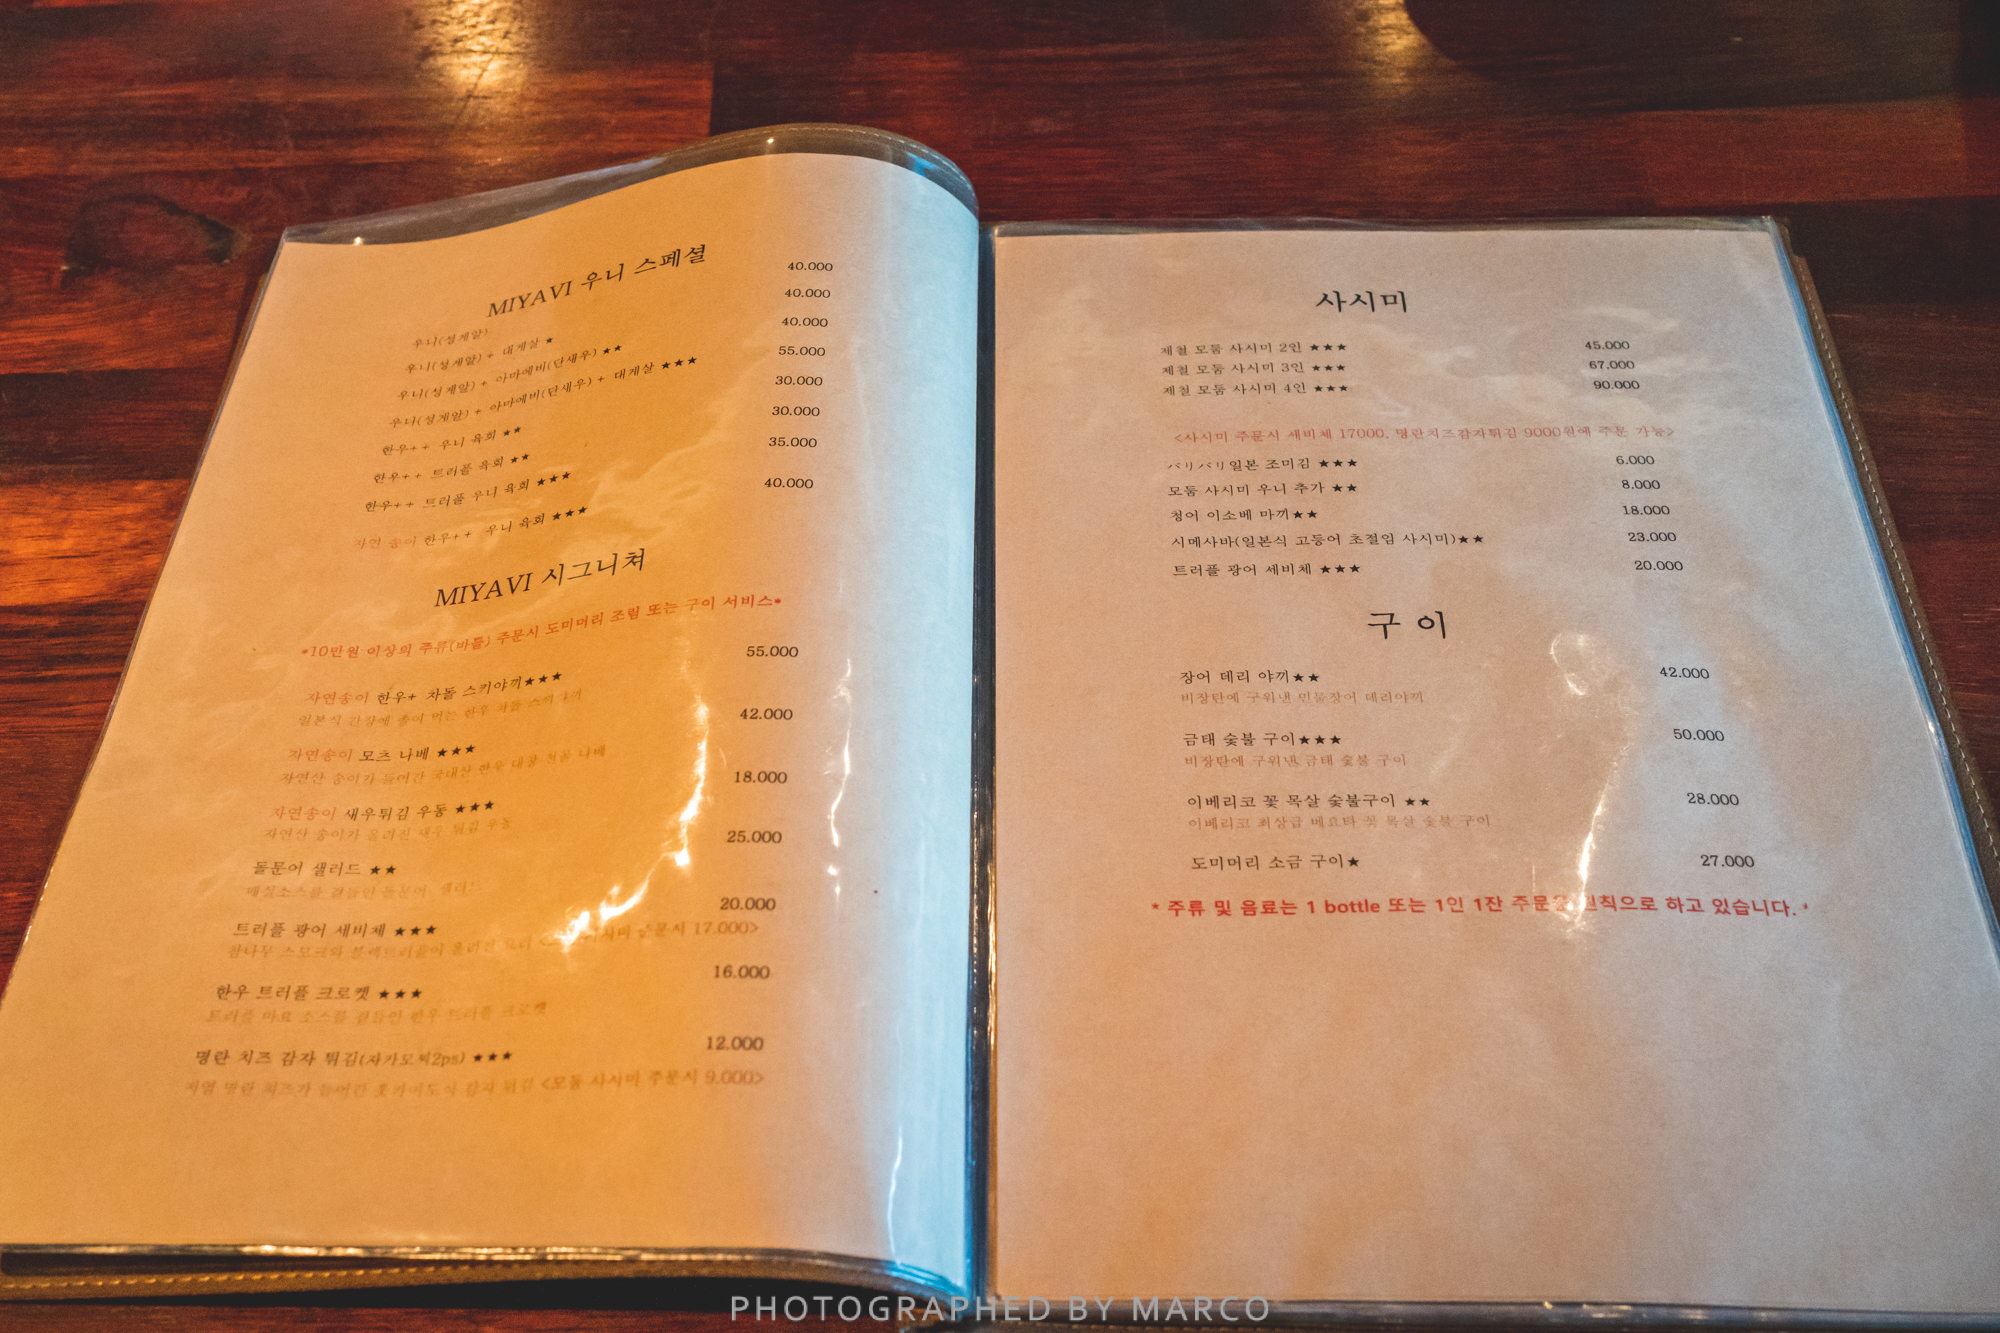 MIYAVI 우니 스페셜
우니(성게알) 40.000
우니(성게알) + 대게살 ★ 40.000
우니(성게알) + 아마에비(단새우) ★★ 40.000
우니(성게알) + 아마에비(단새우) + 대게살 ★★★ 55.000
한우++ 우니 육회 ★★ 30.000
한우++ 트러플 육회 ★★ 30.000
한우++ 트러플 우니 육회 ★★★ 35.000
자연 송이 한우++ 우니 육회 ★★★ 40.000
MIYAVI 시그니쳐
*10만원 이상의 주류(바틀) 주문시 도미머리 조림 또는 구이 서비스*
자연송이 한우+ 차돌 스키야끼★★★ 55.000
일본식 간장에 졸여 먹는 한우 차돌 스끼
자연송이 모츠 나베 ★★★ 42.000
자연산 송이가 들어간 국내산 한우 대창 전골 나베
자연송이 새우튀김 우동 ★★★ 18.000
자연산 송이가 올려진 새우 튀김 우동
돌문어 샐러드 ★★ 25.000
매실소스를 곁들인 돌문어 샐러드
트러플 광어 세비체 ★★★ 20.000
참나무 스모크와 블랙트러플이 올려진 요리 사시미 주문시 17.000>
한우 트러플 크로켓 ★★★ 16.000
트러플 마요 소스를 곁들인 한우 트러플 크로켓
명란 치즈 감자 튀김(자가모찌2ps) ★★★ 12.000
저염 명란 치즈가 들어간 감자 튀김 <모둠 사시미 주문시 9.000>
사시미
제철 모둠 사시미 2인 ★★★ 45.000
제철 모둠 사시미 3인 ★★★ 67.000
제철 모둠 사시미 4인 ★★★ 90.000
<사시미 주문시 세비체 17000, 명란치즈감자튀김 9000원에 주문 가능>
バリバリ일본 조미김 ★★★ 6.000
모둠 사시미 우니 추가 ★★ 8.000
청어 이소베 마끼★★ 18.000
시메사바(일본식 고등어 초절임 사시미)★★ 23.000
트러플 광어 세비체 ★★★ 20.000
구 이
장어 데리 야끼★★ 42.000
비장탄에 구워낸 민물장어 데리야끼
금태 숯불 구이★★★ 50.000
비장탄에 구워낸 금태 숯불 구이
이베리코 꽃 목살 숯불구이 ★★ 28.000
이베리코 최상급 베요타 꽃 목살 숯불 구이
도미머리 소금 구이★ 27.000
* 주류 및 음료는 1 bottle 또는 1인 1잔 주문을 원칙으로 하고 있습니다. *
PHOTOGRAPHED BY MARCO